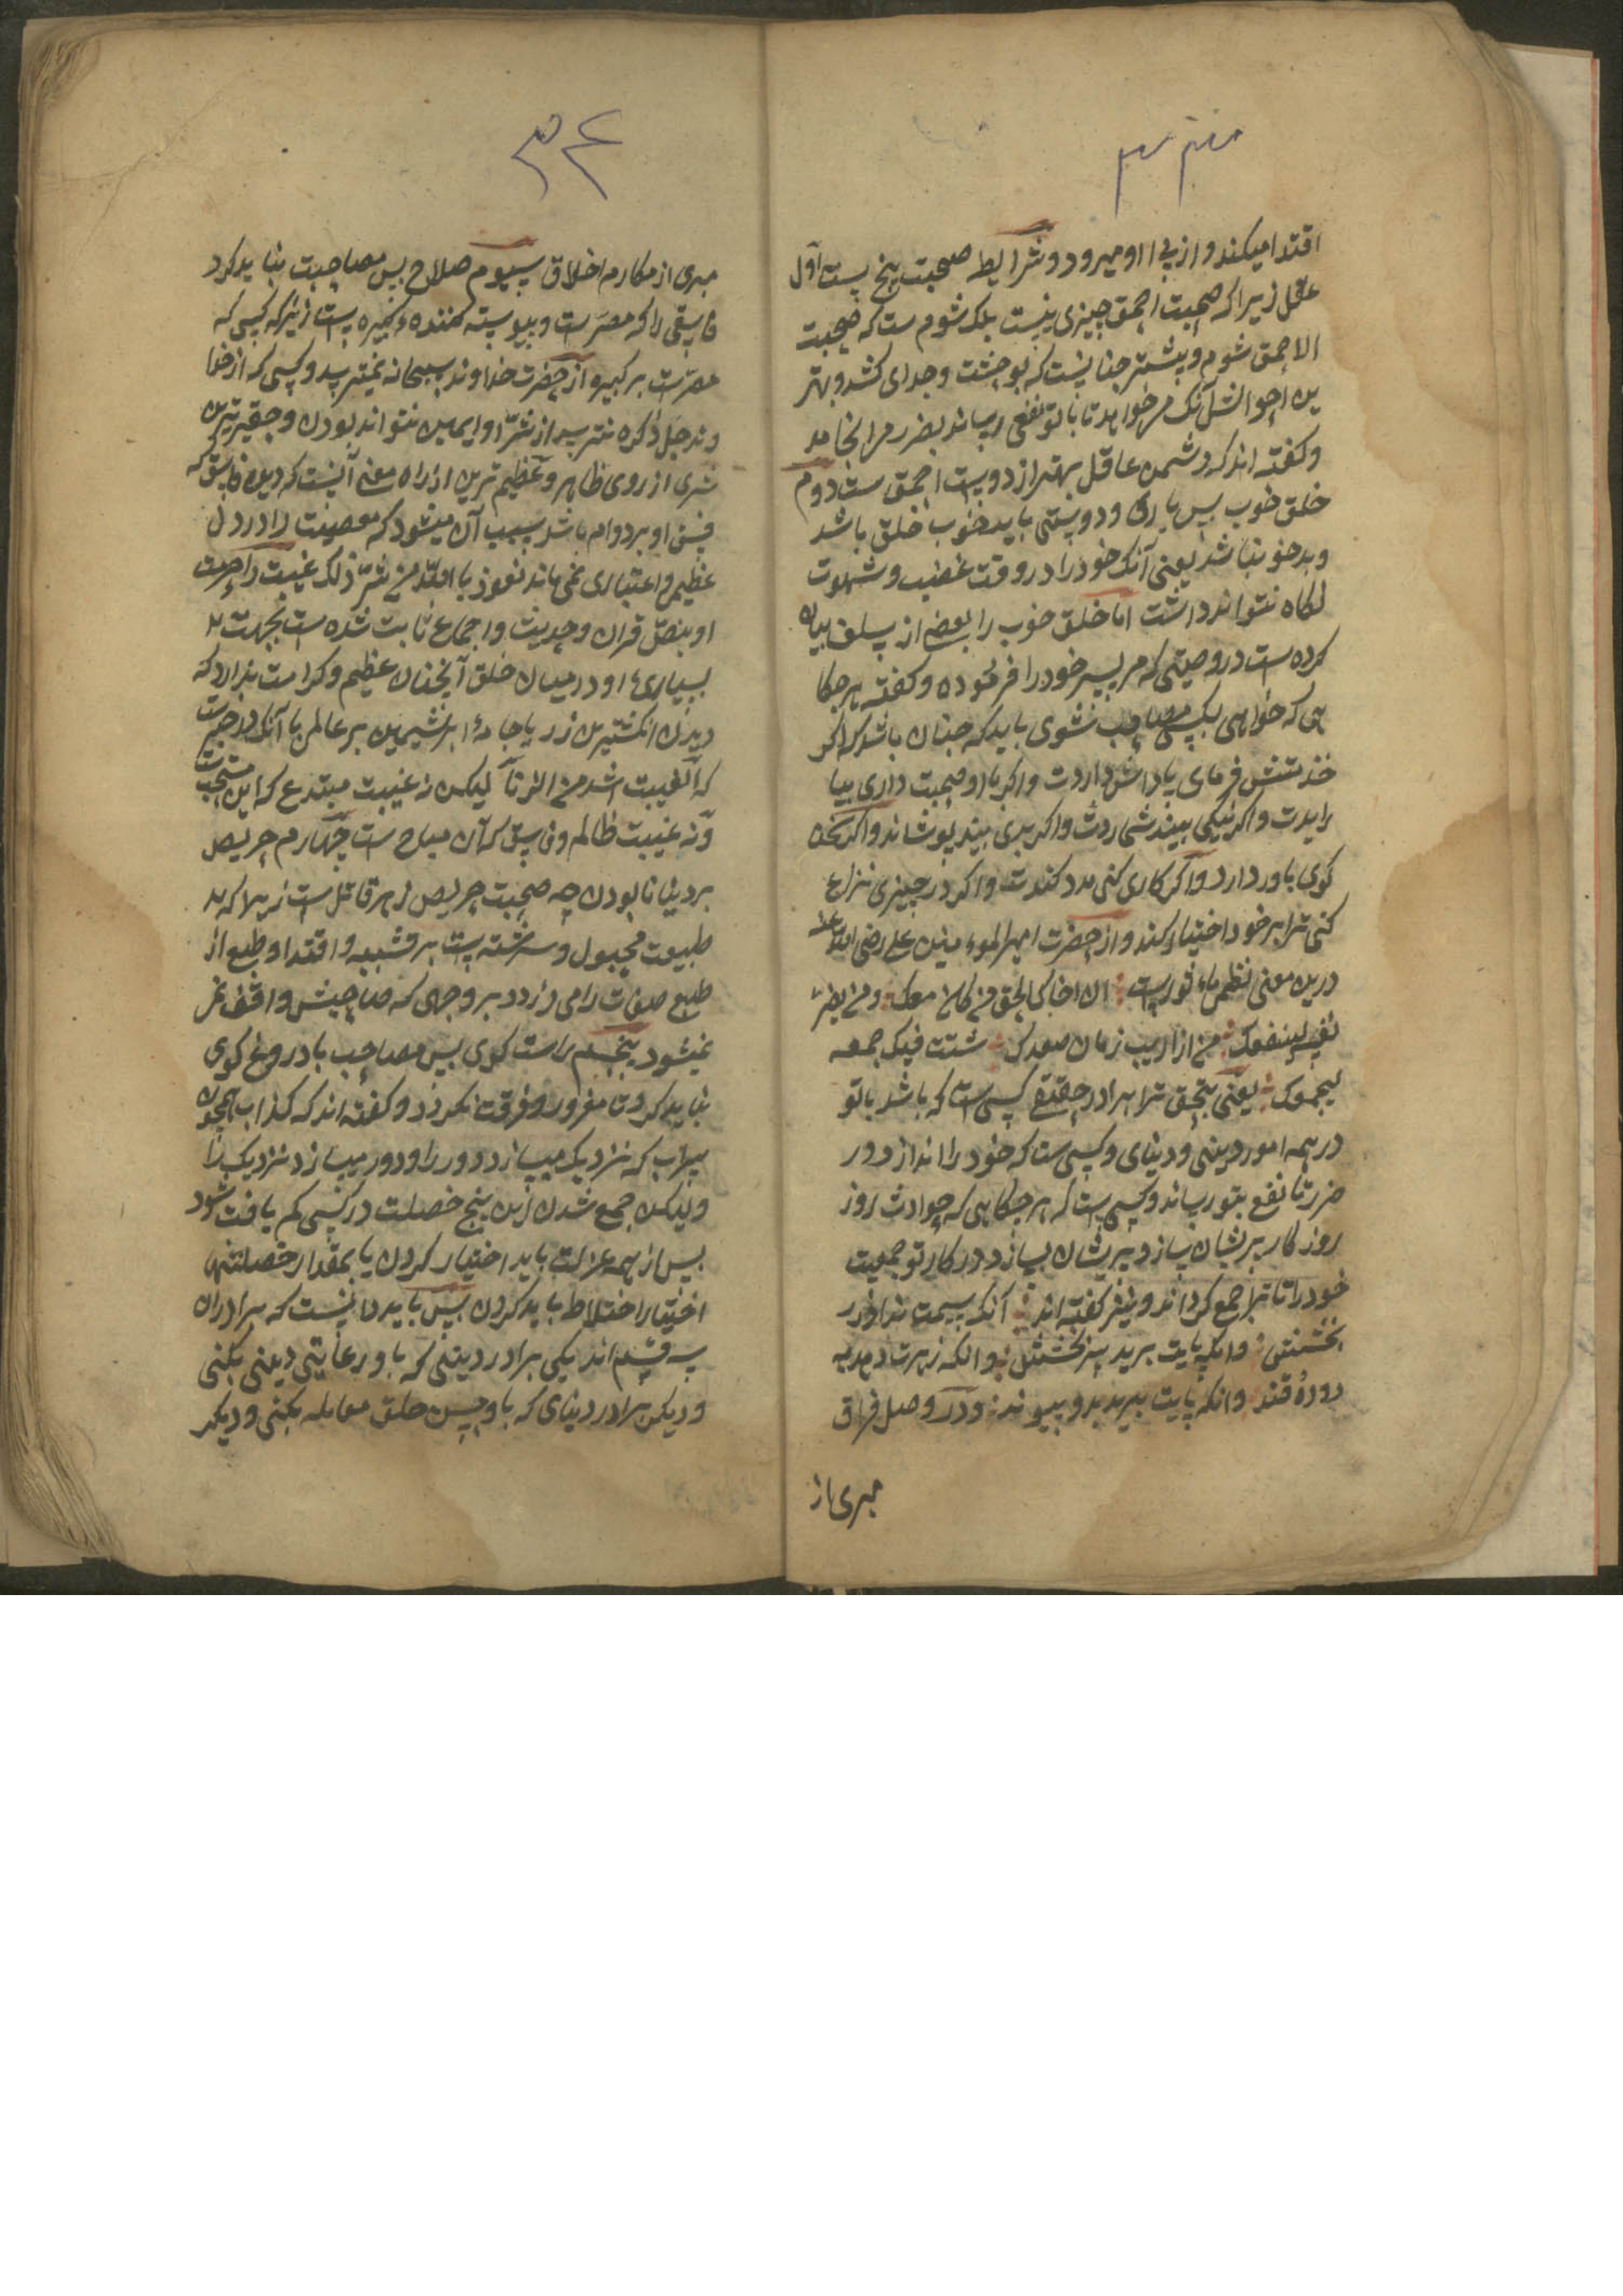 ۳۳
اقتدا میکند و از پی او میرود و شرایط صحبت پنج ست اول
عقل زیرا که صحبت احمق چیزی نیست بلک شوم ست که صحبت
الاحمق شوم و بیشتر چنانست که بوحشت و جدای کشد و بهتر
ین احوالش آنک میخواهد تا با تو نفعی رساند بضرر می انجامد
و کفته اند که دشمن عاقل بهتر از دوست احمق ست دوم
خلق خوب پس یاری و دوستی باید خوب خلق باشد
و بدخو نباشد یعنی آنک خود را در وقت غضب و شهوت
نکاه نتواند داشت اما خلق خوب را بعضی از سلف بیان
کرده ست در وصیتی که مر پسر خود را فرموده و کفته هر جکا
هی که خواهی بکسی مصاحب شوی باید که چنان باشد که اکر
خدمتش فرمای پاداش داردت و اکر با او صحبت داری بیا
رایدت و اکر نیکی بیند شماردش و اکر بدی بیند بپوشاند و اکر سخن
کوی باور دارد و اکر کاری کنی مدد کندت و اکر در چیزی نزاع
کنی ترا بر خود اختیار کند و از حضرت امیر المومنین علی رضی الله عنه
درین معنی نظمی ماثور ست ان اخاک الحق من کان معک ومن یضر
نفسه لینفعک من اذا ریب زمان صدعک شتت فیک جمعه
لیجمعک یعنی بتحقیق ترا برادر حقیقی کسی ست که باشد با تو
در همه امور دینی و دنیای و کسی ست که خود را اندازد در
ضرر تا نفع بتو رساند و کسی ست که هر جکاهی که حوادث روز
روزکار پریشان سازد پریشان سازد در کار تو جمعیت
خود را تا ترا جمع کرداند و نیز کفته اند آنک سیمت نداد زر
بخشش و انکه پایت برید سر بخشش و انکه زهرت دهد به
دو ده قند و انکه پایت ببرد بدو پیوند و در وصل فراق
مبری از
۳۴
مبری از مکارم اخلاق سیوم صلاح پس مصاحبت نباید کرد
فاسقی را که مصرست و پیوسته کننده کبیره ست زیرا که کسی که
مصرست بر کبیره از حضرت خداوند سبحانه نمیترسد و کسی که از خدا
وند جل ذکره نترسد از شر او ایمن نتواند بودن و حقیرترین
شری از روی ظاهر و عظیم ترین از راه معنی آنست که دیدن فاسق که
فسق او بر دوام باشد سبب آن میشود که معصیت را در دل
عظیمی و اعتباری نمی ماند نعوذ بالله من شر ذلک غیبت را حرمت
او بنص قران و حدیث و اجماع ثابت شده ست بجهت
بسیاری او در میان خلق آنچنان عظیم و کراهت ندارد که
دیدن انکشترین زر یا جامه ابریشمین بر عالمی با آنک در خبر ست
که الغیبت اشد من الزنا لیکن نه غیبت مبتدع که این مستحب ست
و نه غیبت ظالم و فاسق که آن مباح ست چهارم حریص
بر دنیا نابودن چه صحبت حریص زهر قاتل ست زیرا که
طبیعت مجبول و سرشته ست بر تشبیه و اقتدا و طبع از
طبع صفات را می دزدد بر وجهی که صاحبش واقف نمی
نمیشود پنجم راست کوی پس مصاحب با دروغ کوی
نباید کرد تا مغرور و فرقت نکردد و کفته اند که کذاب همچون
سراب که نزدیک میسازد دور را و دور میسازد نزدیک را
ولیکن جمع شدن این پنج خصلت در کسی کم یافت شود
پس از همه عزلت باید اختیار کردن یا بمقدار خصلتهای
اختیار اختلاط باید کردن پس باید دانست که برادران
سه قسم اند یکی برادر دینی که با او رعایتی دینی بکنی
و دیکر برادر دنیای که با او حسن خلق معامله بکنی و دیکر